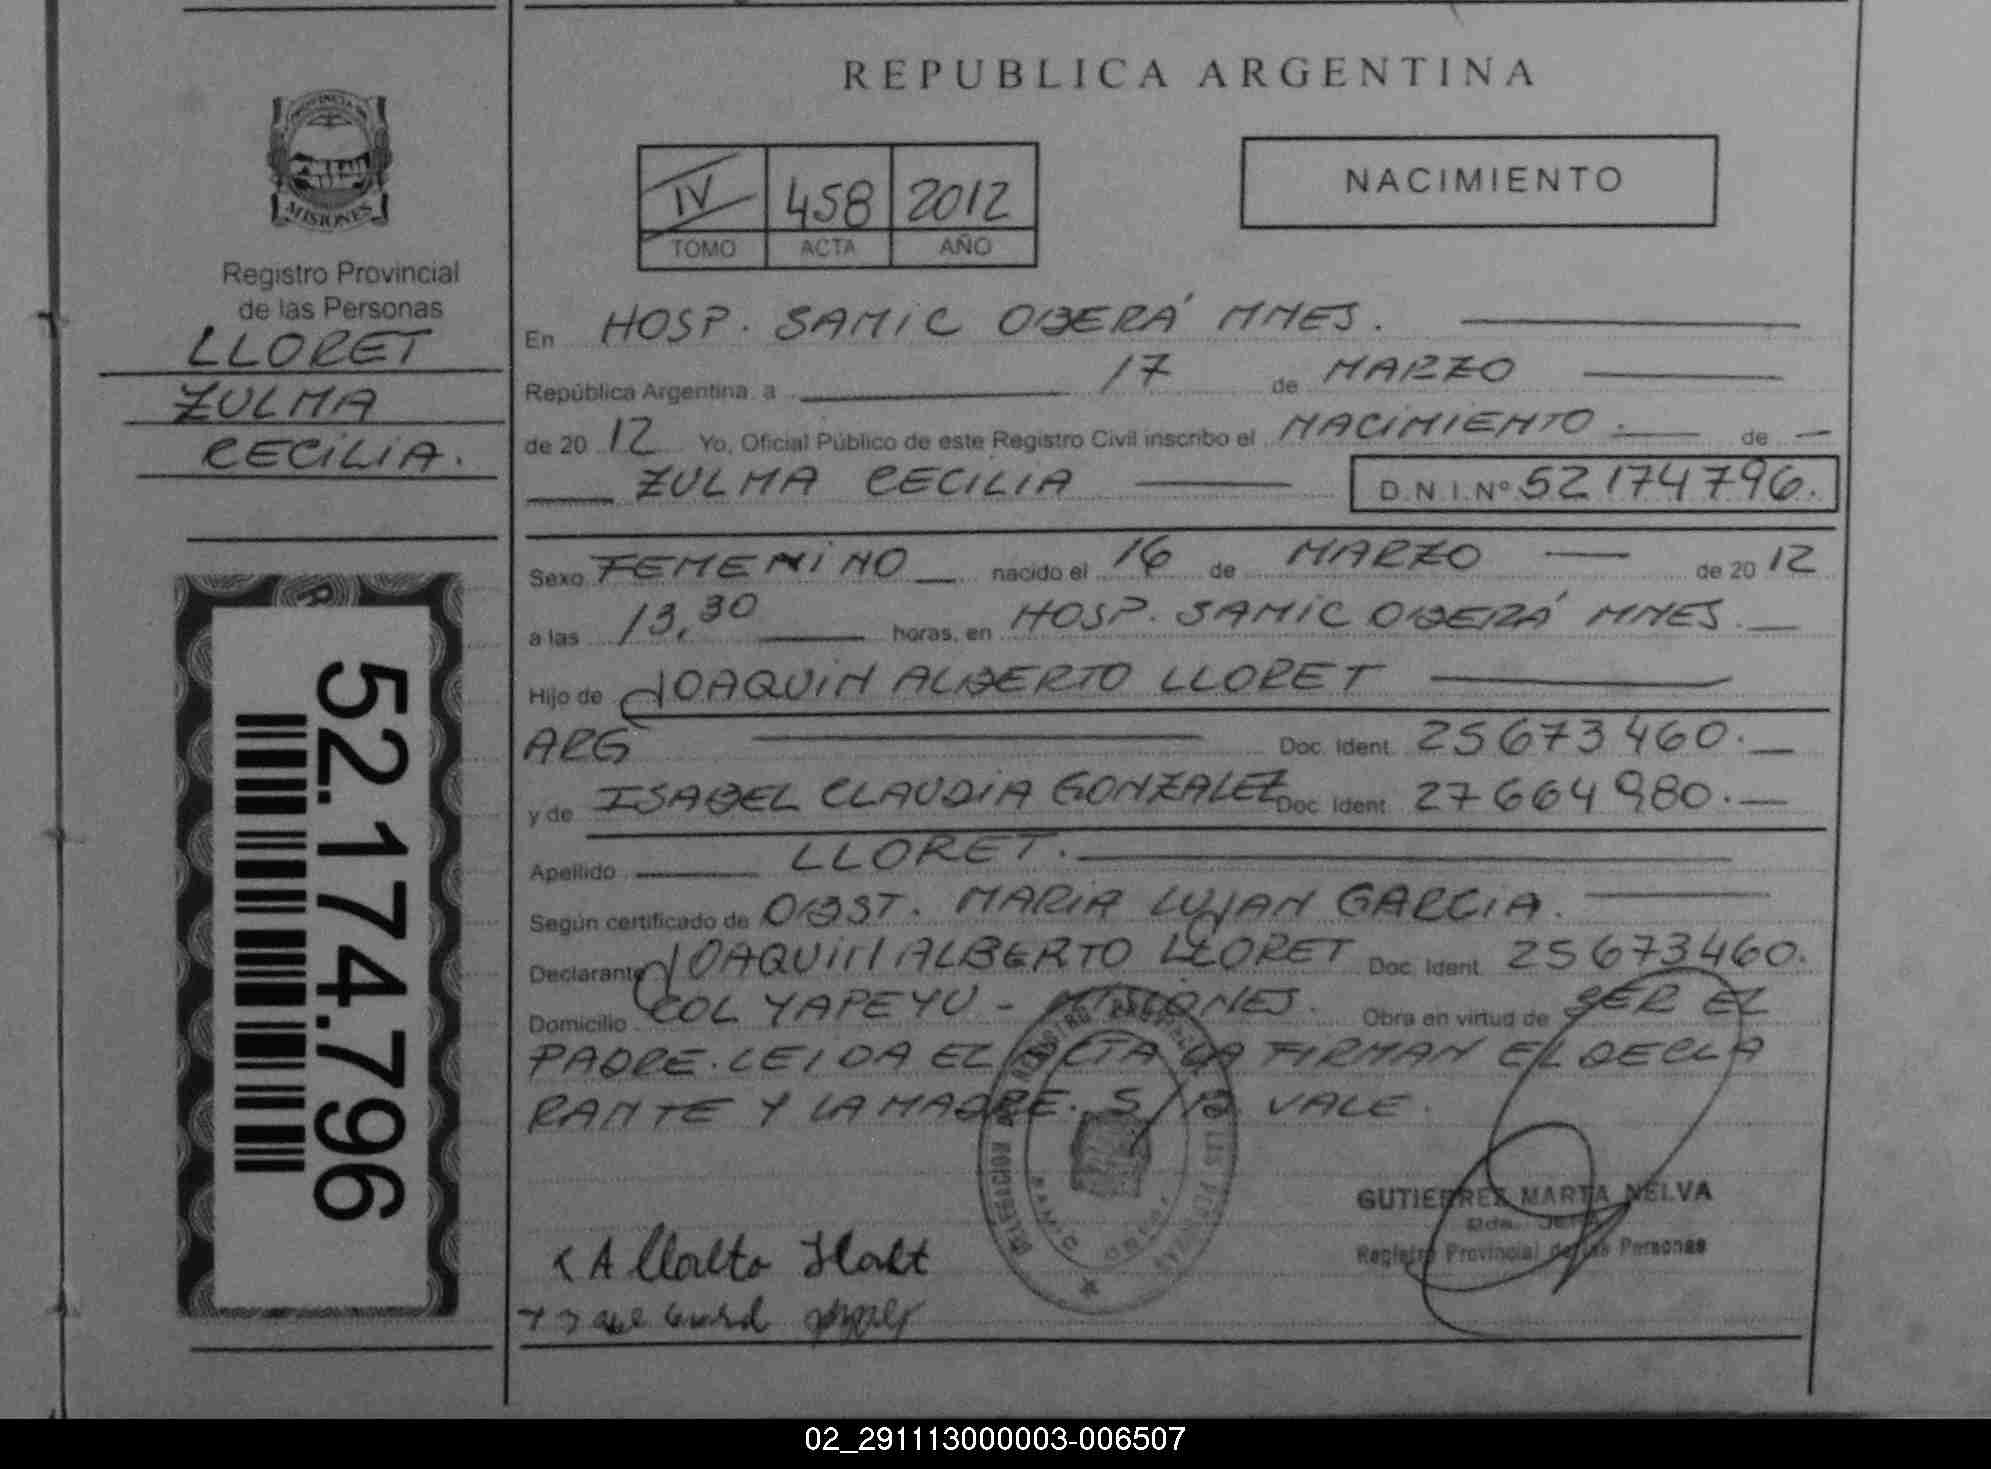 REPUBLICA ARGENTINA
PROVINCIA DE
MISIONES
Registro Provincial
de las Personas
LLORET
ZULMA
CECILIA.
52.174.796
IV 458 2012
TOMO ACTA AÑO
NACIMIENTO
En HOSP. SAMIC OBERÁ MNES.
República Argentina, a 17 de MARZO
de 20 12 Yo, Oficial Público de este Registro Civil inscribo el NACIMIENTO. de
ZULMA CECILIA D.N.I.Nº 52174796.
Sexo FEMENINO nacido el 16 de MARZO de 20 12
a las 13,30 horas, en HOSP. SAMIC OBERÁ MNES.
Hijo de JOAQUIN ALBERTO LLORET
ARG Doc. Ident. 25673460.
y de ISABEL CLAUDIA GONZALEZ Doc. Ident. 27664980.
Apellido LLORET.
Según certificado de OBST. MARIA LUJAN GARCIA.
Declarante JOAQUIN ALBERTO LLORET Doc. Ident. 25673460.
Domicilio COL YAPEYU - MISIONES. Obra en virtud de SER EL
PADRE. LEIDA EL ACTA LA FIRMAN EL DECLA
RANTE Y LA MADRE. S/R VALE.
DELEGACION REGISTRO PROVINCIAL DE LAS PERSONAS
SAMIC OBERA
GUTIERREZ MARTA NELVA
Registro Provincial de las Personas
02_291113000003-006507